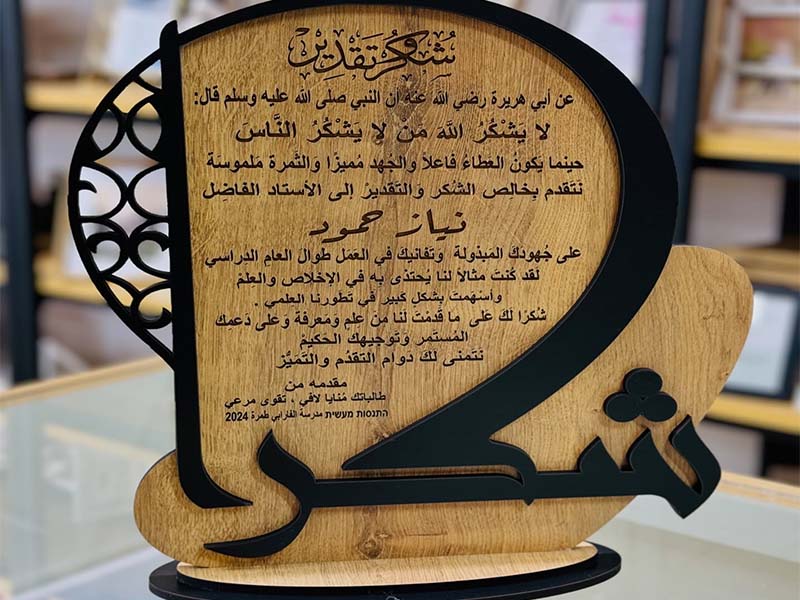 شكر وتقدير
عن أبي هريرة رضي الله عنه أن النبي صلى الله عليه وسلم قال:
لا يَشْكُرُ اللهَ مَن لا يَشْكُرُ النَّاسَ
حينما يكونُ العطاءُ فاعلاً والجُهد مُميزًا والثَّمرة مَلموسَة
نَتَقدم بِخالص الشُكر وَالتقديرُ إلى الأستاد الفاضِل
نياز حمود
على جُهودكَ المَبذولة وَتفانيك في العَمَل طوالَ العامِ الدراسي
لَقد كُنتَ مثالاً لنا يُحتَذى به في الإخلاص والعِلمْ
وأسْهمتَ بِشكلٍ كَبيرٍ في تَطورنا العِلمي .
شُكرًا لكَ على ما قَدمْتَ لَنا مِن عِلمٍ وَمَعرفَة وَعَلى دَعمكَ
المُستَمر وَتوجيهكَ الحَكيمْ
نَتَمنى لكَ دَوام التقدُم والتَمَيُّز
مقدمه من
طالباتك مُنايا لافي ، تَقوى مرعي
התנסות מעשית مدرسة الفارابي طمرة 2024
شكرا